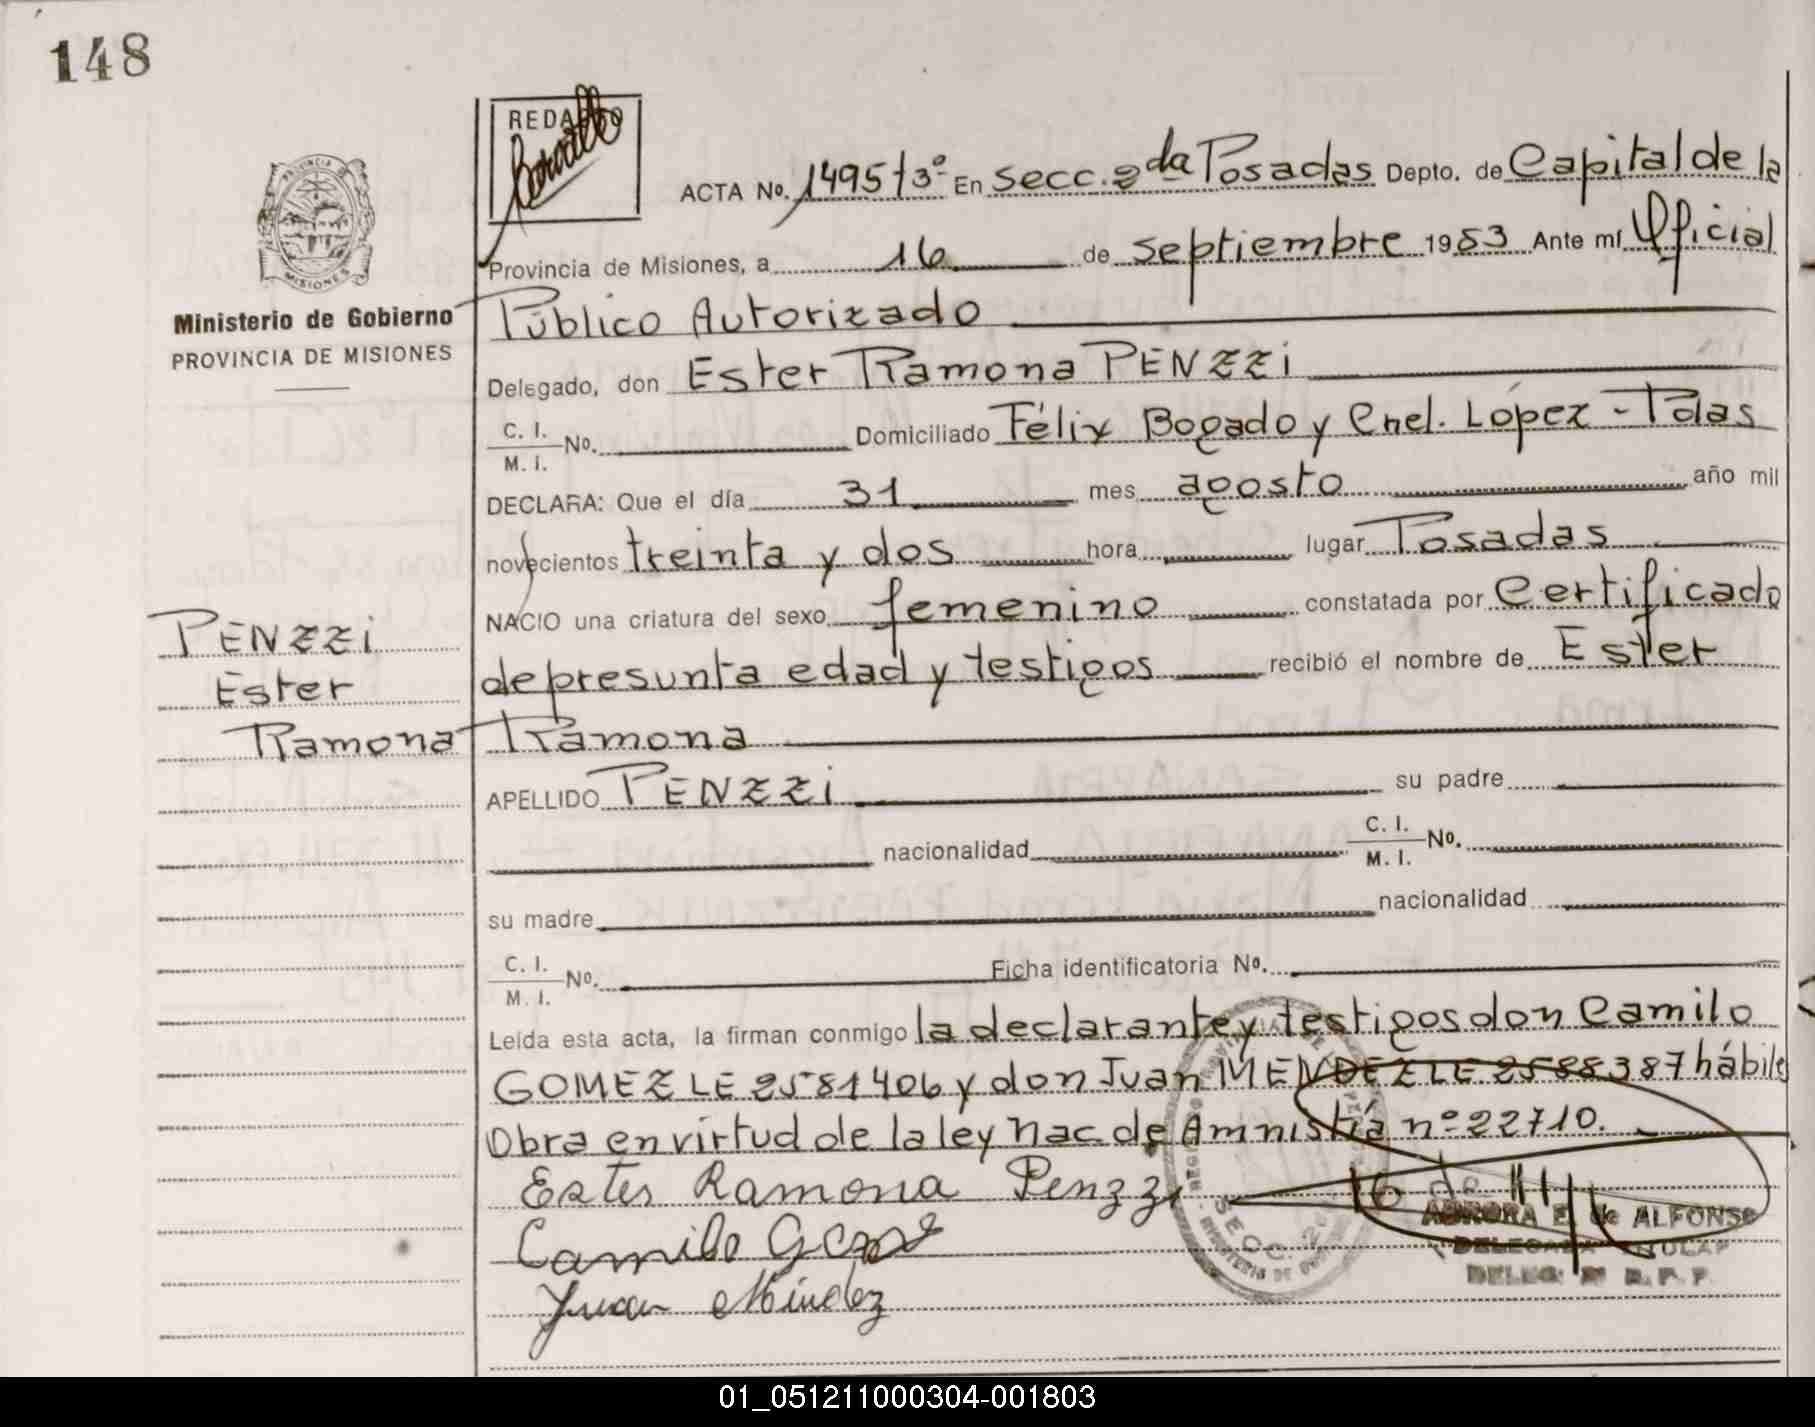 148
REDACTO
ACTA No. 1495 T3º En Secc. 2da Posadas Depto. de Capital de la
PROVINCIA
MISIONES
Provincia de Misiones, a 16 de septiembre 1983 Ante mí Oficial
Ministerio de Gobierno
PROVINCIA DE MISIONES
Público Autorizado
Delegado, don Ester Ramona PENZZi
C. I.
M. I. No. Domiciliado Félix Bogado y Cnel. López - Pdas
DECLARA: Que el día 31 mes agosto año mil
novecientos treinta y dos hora lugar Posadas
NACIO una criatura del sexo femenino constatada por Certificado
PENZZi
Ester
Ramona
de presunta edad y testigos recibió el nombre de Ester
Ramona
APELLIDO PENZZi su padre
nacionalidad C. I.
M. I. No.
su madre nacionalidad
C. I.
M. I. No. Ficha identificatoria No.
Leída esta acta, la firman conmigo la declarante y testigos don Camilo
GOMEZ LE 2581406 y don Juan MENDEZ LE 2588387 hábiles
Obra en virtud de la ley Nac. de Amnistía nº 22710.
Ester Ramona Penzzi
Camilo Gomez
Juan Méndez
SECC. 2
AURORA E. de ALFONSO
DELEGADA TITULAR
01_051211000304-001803